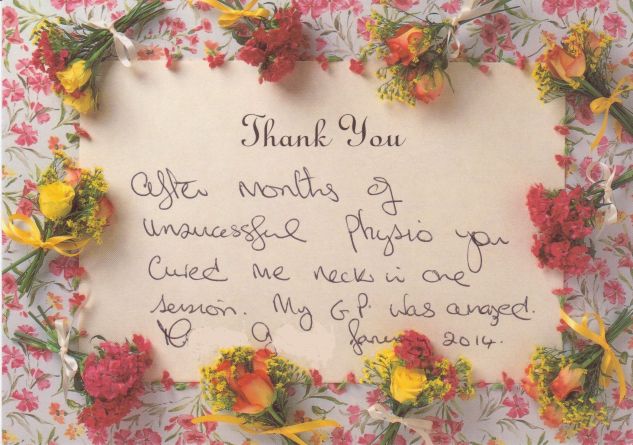 Thank You
After months of
unsucessful Physio you
Cured me neck in one
session. My G.P. was amazed.
2014.